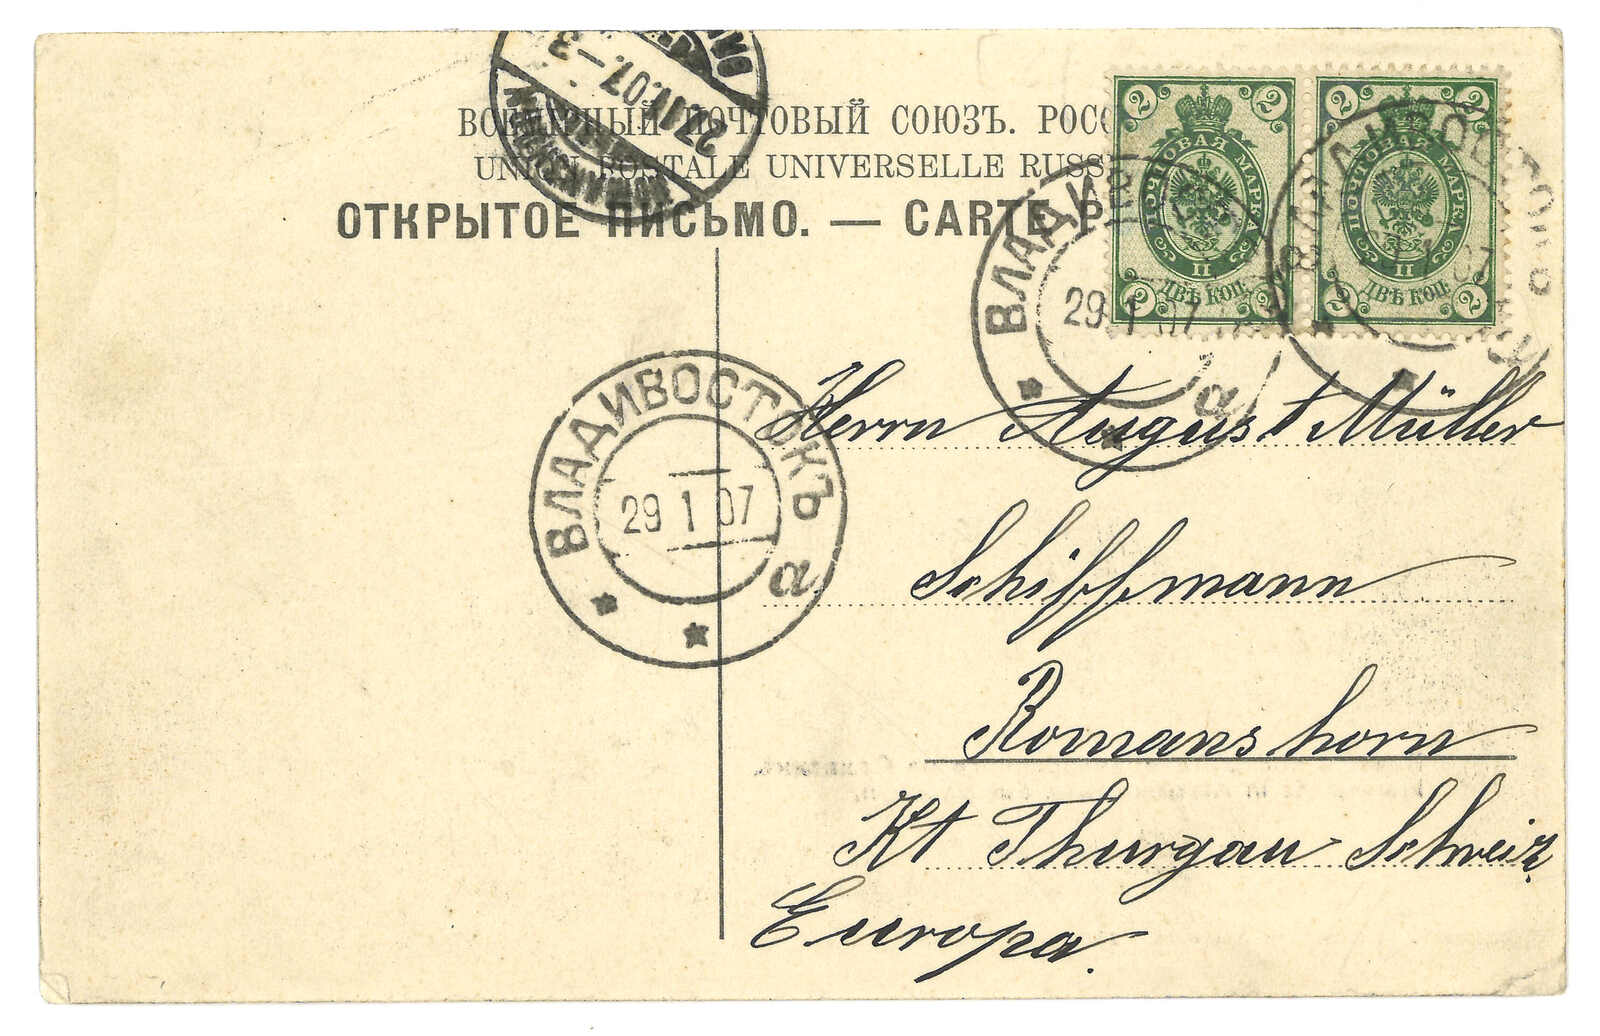 ВСЕМІРНЫЙ ПОЧТОВЫЙ СОЮЗЪ. РОСС
UNION POSTALE UNIVERSELLE RUSS
ОТКРЫТОЕ ПИСЬМО. — CARTE P
23.II.07.—3
ROMANSHORN
2 2
ПОЧТОВАЯ МАРКА
II
ДВѢ КОП.
2 2
2 2
ПОЧТОВАЯ МАРКА
II
ДВѢ КОП.
2 2
ВЛАДИВОСТОКЪ
29 1 07
а
ВЛАДИВОСТОКЪ
1 07
ВЛАДИВОСТОКЪ
29 1 07
а
Herrn August Müller
Schiffmann
Romanshorn
Kt Thurgau Schweiz
Europa.